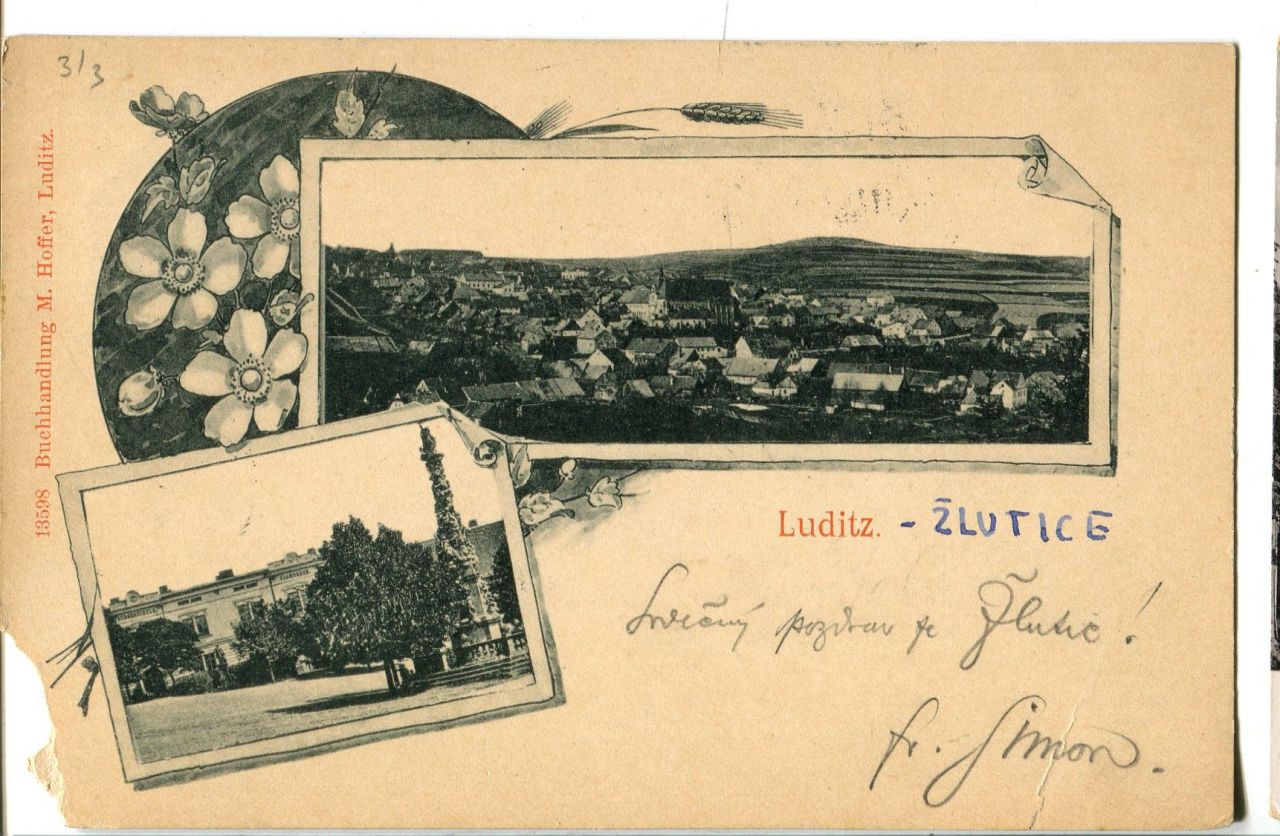 3/3
13598 Buchhandlung M. Hoffer, Luditz.
Luditz. - ŽLUTICE
Srdečný pozdrav ze Žlutic!
Fr. Šimon.